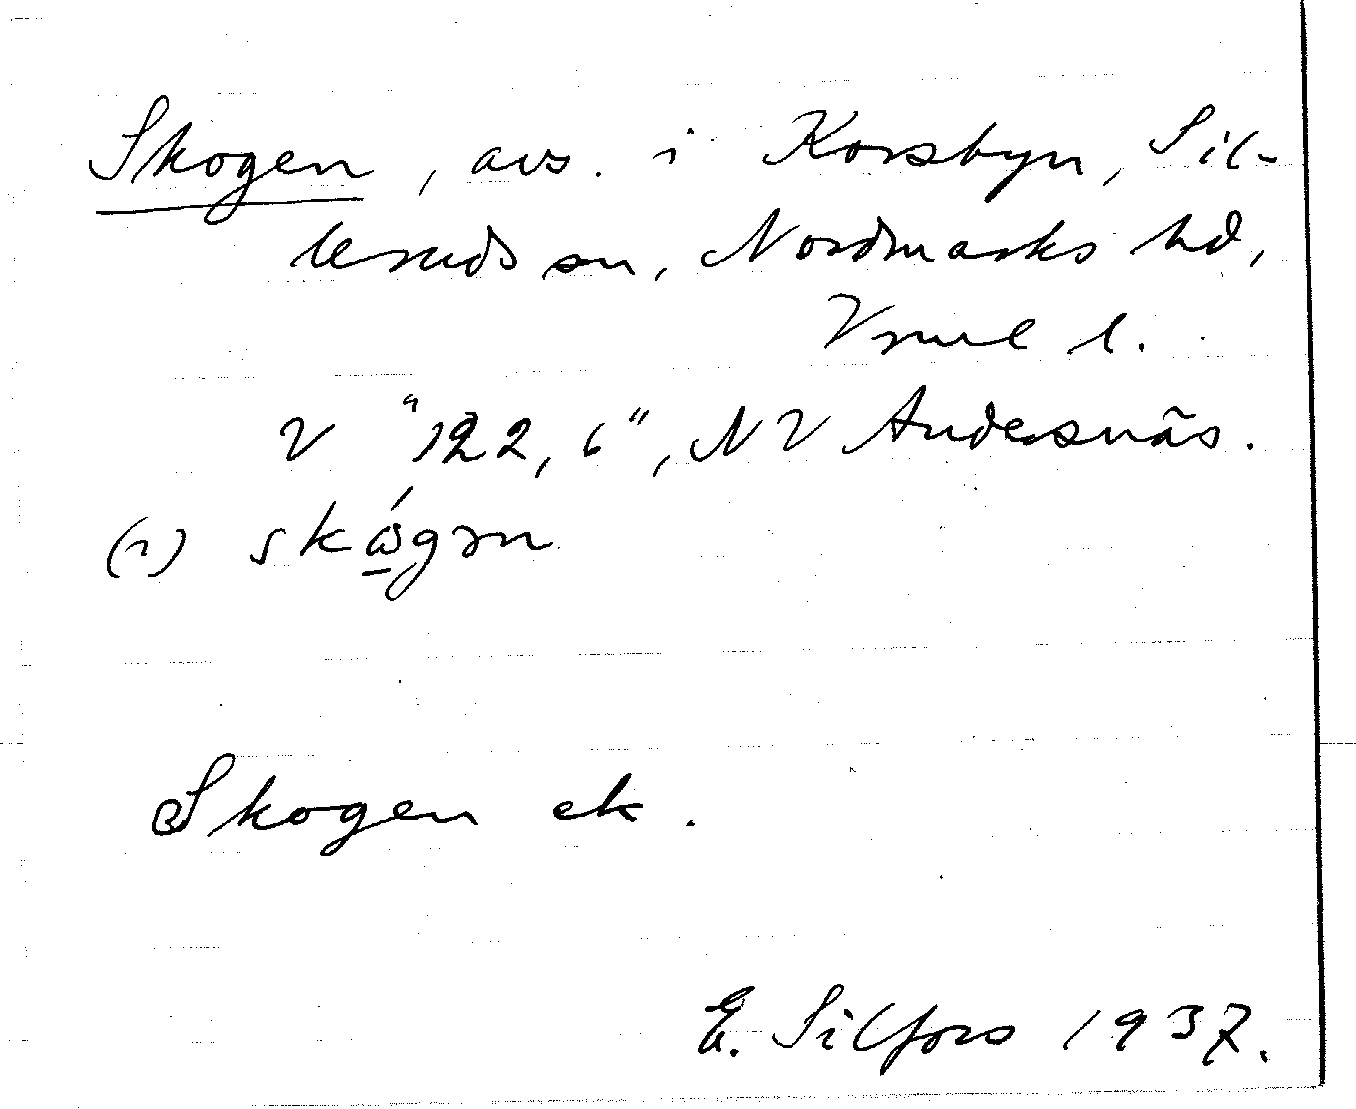 Skogen, avs. i Korsbyn, Sil-
leruds sn, Nordmarks hd,
Vrml l.
V "122,6", NV Andersnäs.
(i)
Skogen ek.
E. Silfors 1937.